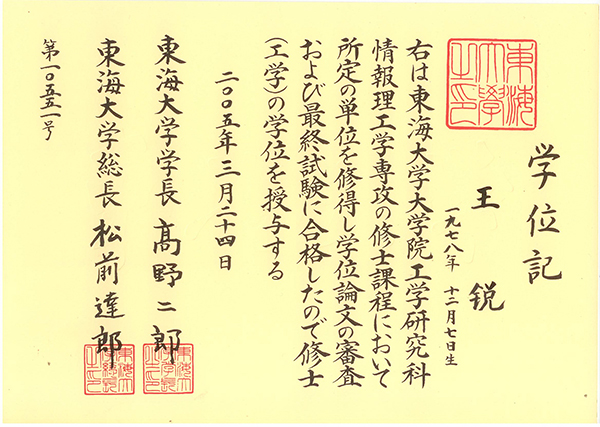 東海大學之印
学位記
王 锐
一九七八年 十二月七日生
右は東海大学大学院工学研究科
情報理工学専攻の修士課程において
所定の単位を修得し学位論文の審査
および最終試験に合格したので修士
(工学)の学位を授与する
二〇〇五年三月二十四日
東海大学学長 髙野二郎
東海大学総長 松前達郎
第一〇五五一号